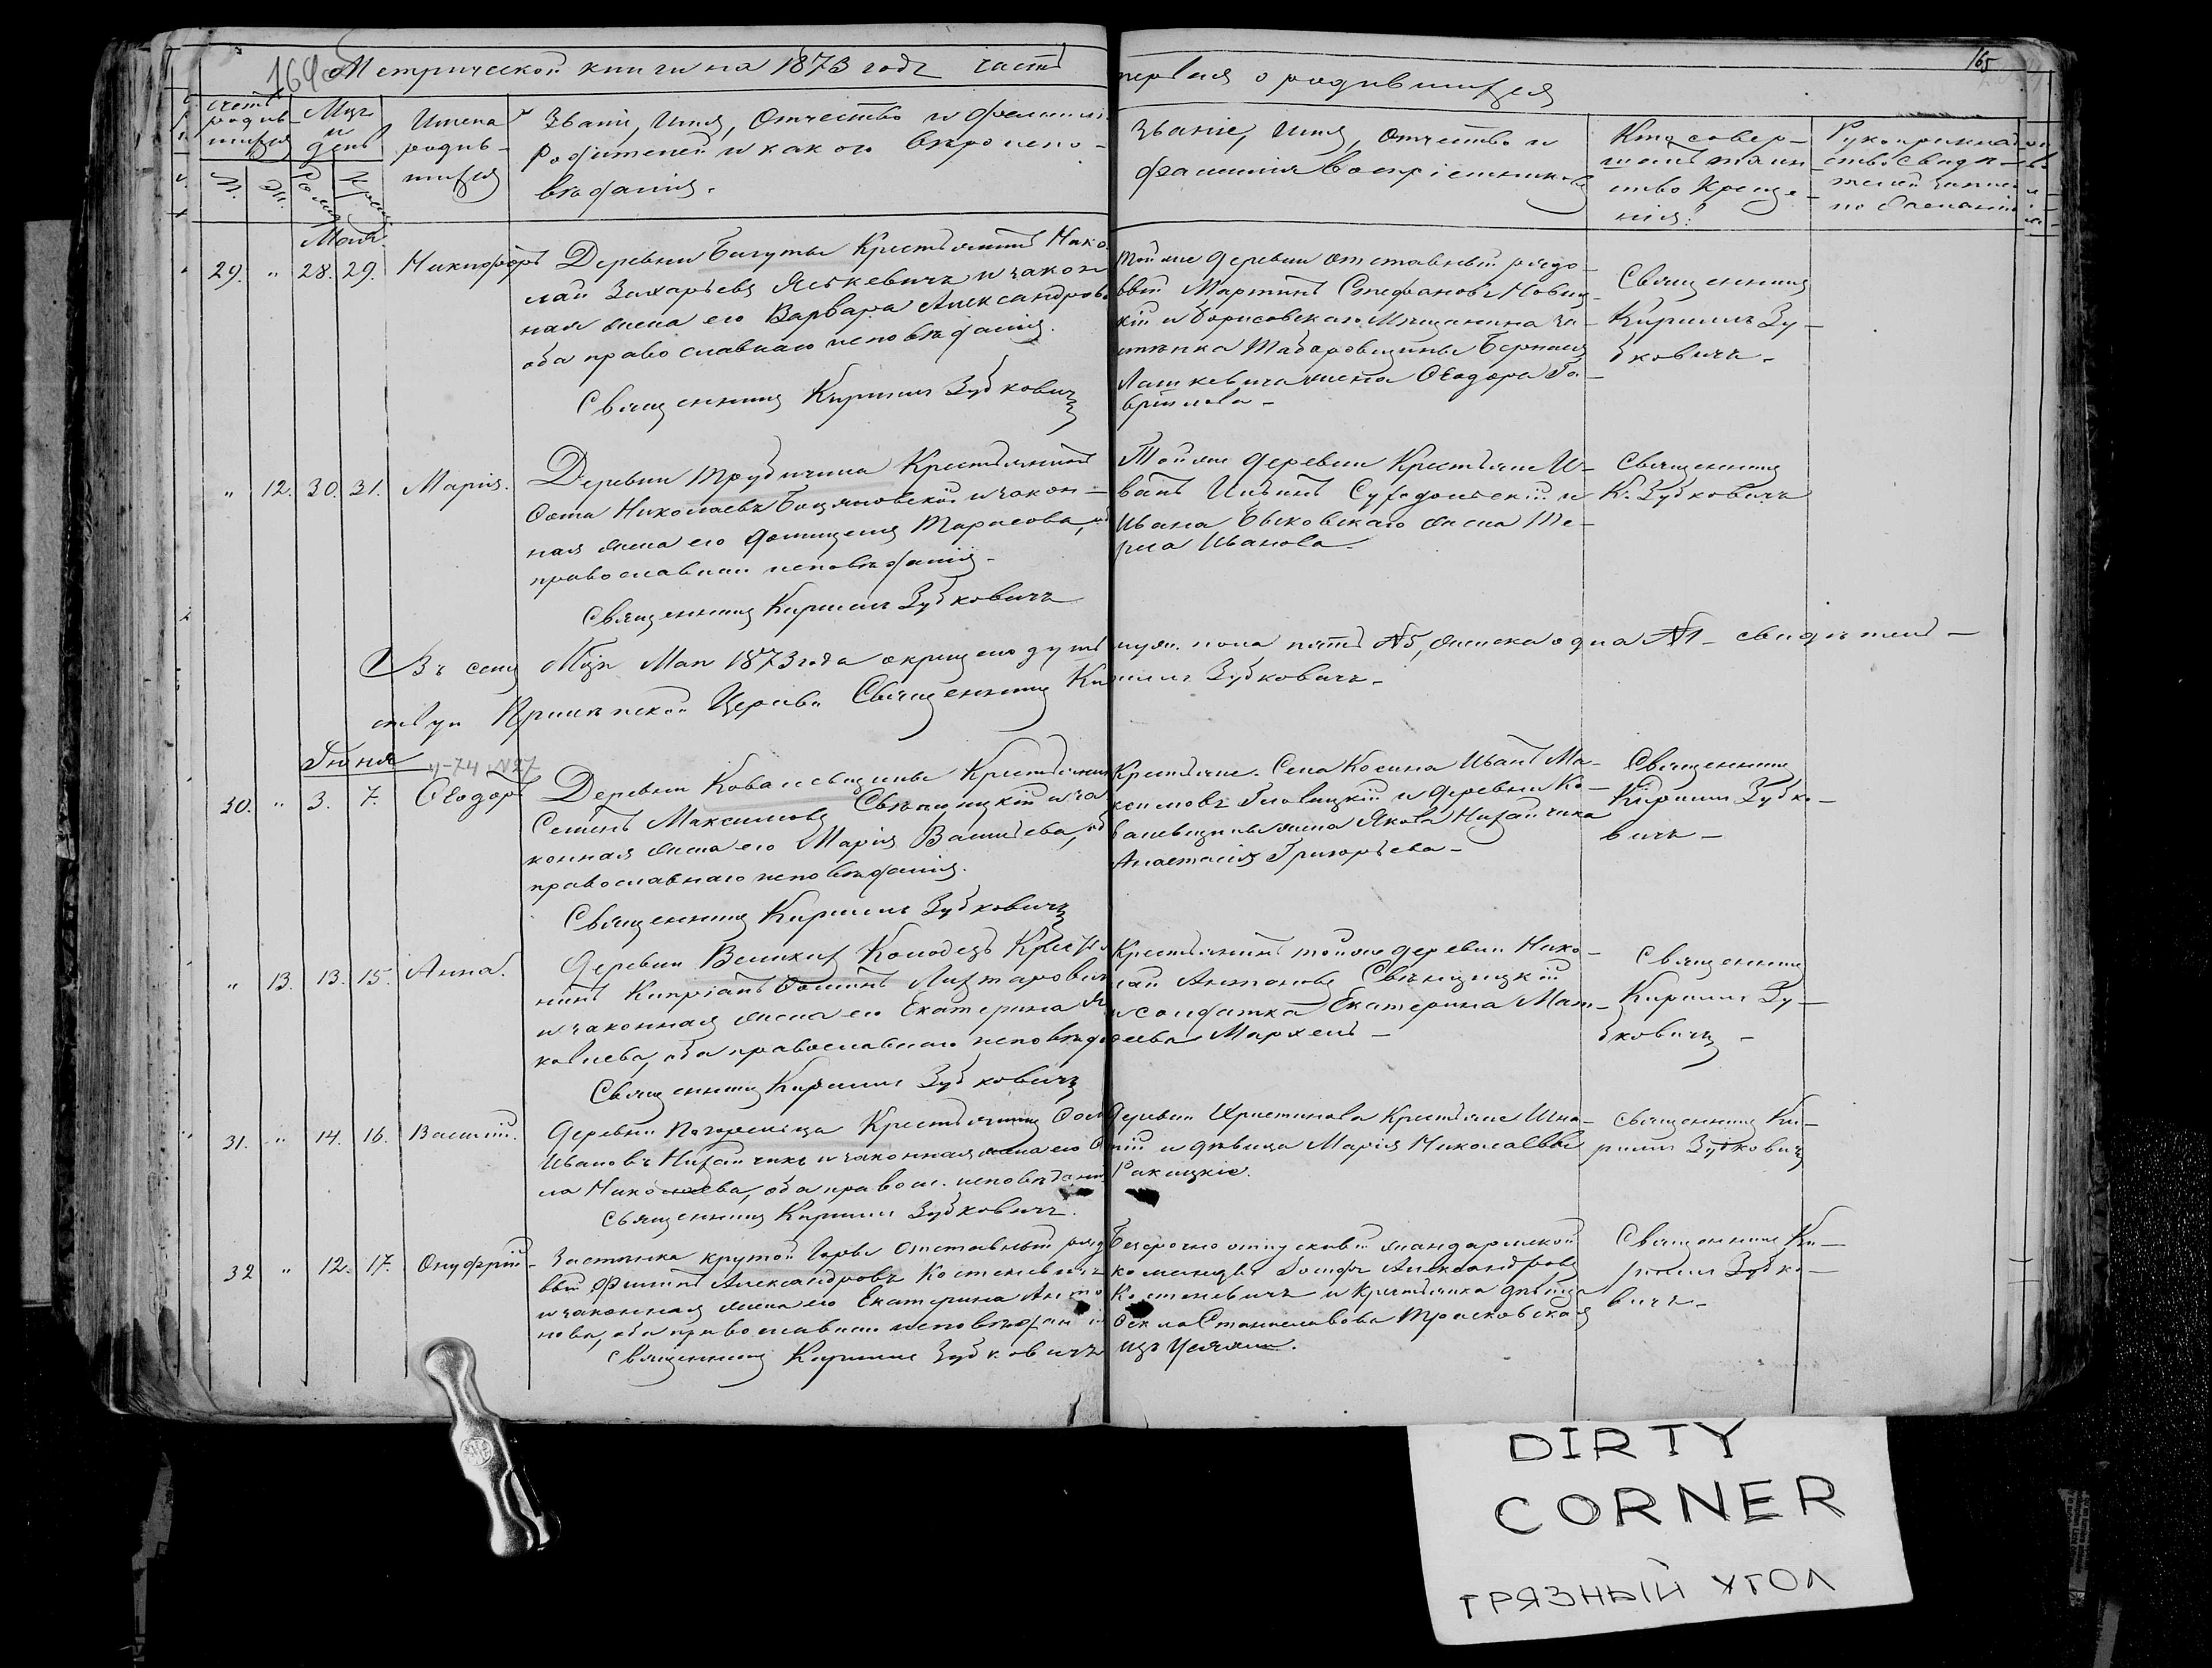 164 Метрической книги на 1873 годъ часть первая о родившихся 165
Счетъ родив-шихся
М. Ж.
Мцъ и день
Рожд. Крещ.
Имена родив-шихся
Званіе, Имя, Отчество и фамилія
Родителей и какого Вѣроиспо-
вѣданія.
Званіе, Имя, Отчество и
фамилія Воспріемниковъ
Кто совер-
шалъ таин
ство Креще-
нія.
Рукоприклад
ство свидѣ-
телей записи
по желанію
Мая.
29. " 28. 29. Никифоръ
Деревни Багуты Крестьянинъ Нико
лай Захарьевъ Яскевичъ и закон
ная жена его Варвара Александрова
оба православнаго исповѣданія.
Священникъ Кириллъ Зубковичъ
Той же деревни отставный рядо-
вый Мартинъ Стефановъ Новиц-
кій и Борисовскаго Мѣщанина за-
стѣнка
Лашкевича жена Ѳеодора Га-
вріилова -
Священникъ
Кириллъ Зу-
бковичъ -
" 12. 30. 31. Марія.
Деревни Трубичина Крестьянинъ
Ѳома Николаевъ и закон-
ная жена его Домникія Тарасова,
православнаго исповѣданія -
Священникъ Кириллъ Зубковичъ
Той же деревни Крестьяне И-
ванъ и
Ивана Быковскаго жена Те-
рса Иванова.
Священникъ
К. Зубковичъ
Въ семъ Мцѣ Маѣ 1873 года окрещено душъ муж. пола пять №5, женска одна №1 - свидѣтель-
ствую Церкви Священникъ Кириллъ Зубковичъ -
Іюня
4-74 №27
30. " 3. 7. Ѳеодоръ
Деревни Ковалевщины Крестьянинъ
Семенъ Максимовъ Свѣницкій и за
конная жена его Марія Васильева, об
православнаго исповѣданія.
Священникъ Кириллъ Зубковичъ
Крестьяне. Села Косина Иванъ Ма-
ксимовъ и деревни Ко-
валевщины жена Якова Нихайчика
Анастасія Григорьева -
Священникъ
Кириллъ Зубко-
вичъ -
" 13. 13. 15. Анна.
Деревни Великихъ Колодезь Кресть
нинъ Кипріанъ Ѳоминъ Лихтаровичъ
и законная жена его Екатерина Я
ковлева, оба православнаго исповѣда
Священникъ Кириллъ Зубковичъ
Крестьянинъ той же деревни Нико-
лай Антоновъ Свѣницкій
и солдатка Екатерина Мат-
ѳеева Мархель -
Священникъ
Кириллъ Зу-
бковичъ -
31. " 14. 16. Василій.
Деревни Погорельца Крестьянинъ
Ивановъ Нихайчикъ и законная жена его
ла Николаева, оба правосл. исповѣданія
Священникъ Кириллъ Зубковичъ.
Деревни Христинова Крестьяне Игна-
тій и дѣвица Марія Николаевы
Ракицкіе.
Священникъ Ки-
риллъ Зубковичъ
32 " 12. 17. Онуфрій -
Застѣнка крутой Горы Отставный рядо
вый Филипъ Александровъ Костеневичъ
и законная жена его Екатерина Анто
нова, оба православнаго исповѣданія
Священникъ Кириллъ Зубковичъ
Безсрочно отпускный жандармской
команды Іосифъ Александровъ
Костеневичъ и крестьянка дѣвица
Ѳекла Станиславова Трасковская
изъ
Священникъ Ки-
риллъ Зубко-
вичъ -
DIRTY
CORNER
ГРЯЗНЫЙ УГОЛ